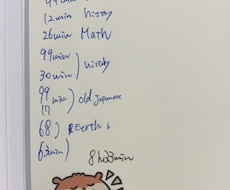 12min history
26min Math
99min
30min) history
99min
17) old Japanese
68) Earth
63min)
8h33min